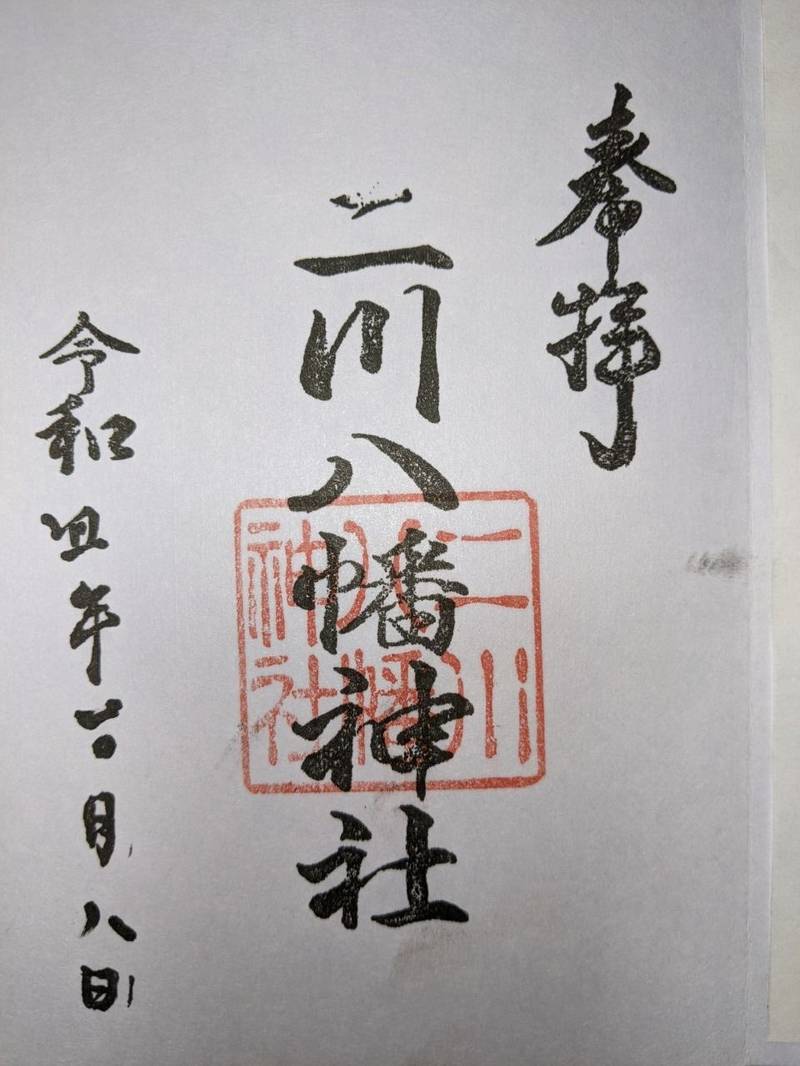 奉拝
二川八幡神社
令和 年 月八日
二川
八幡
神社